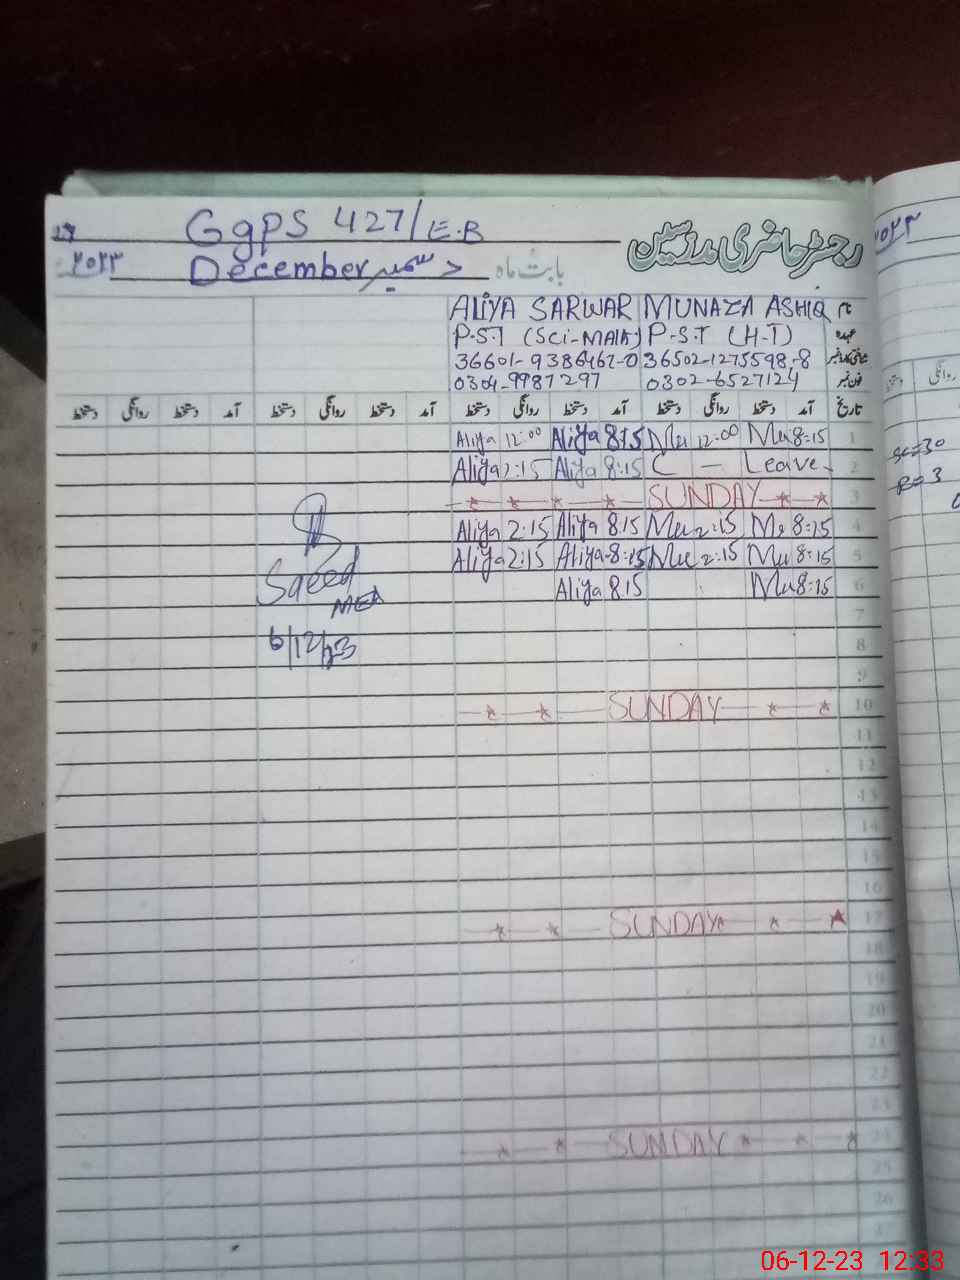 GgPS 427/E.B
رجسٹر حاضری مدرسین
۲۰۲۳ December دسمبر بابت ماہ
ALIYA SARWAR MUNAZA ASHIQ نام
P.S.T (Sci-Math) P.S.T (H.T) عہدہ
36601-9386467-0 36502-1275598-8
0304-9987297 0302-6527124 فون نمبر
تاریخ آمد دستخط روانگی دستخط آمد دستخط روانگی دستخط آمد دستخط روانگی دستخط آمد دستخط روانگی دستخط
Aliya 12:00 Aliya 8:15 Mu 12:00 Mu 8:15 1
Aliya 2:15 Aliya 8:15 C — Leave 2
SUNDAY 3
Aliya 2:15 Aliya 8:15 Mu 2:15 Mu 8:15 4
Aliya 2:15 Aliya 8:15 Mu 2:15 Mu 8:15 5
Aliya 8:15 Mu 8:15 6
Saeed
MEA
7
6/12/23
8
9
SUNDAY 10
11
12
13
14
15
16
SUNDAY 17
18
19
20
21
22
23
SUNDAY 24
25
26
روانگی
06-12-23 12:33